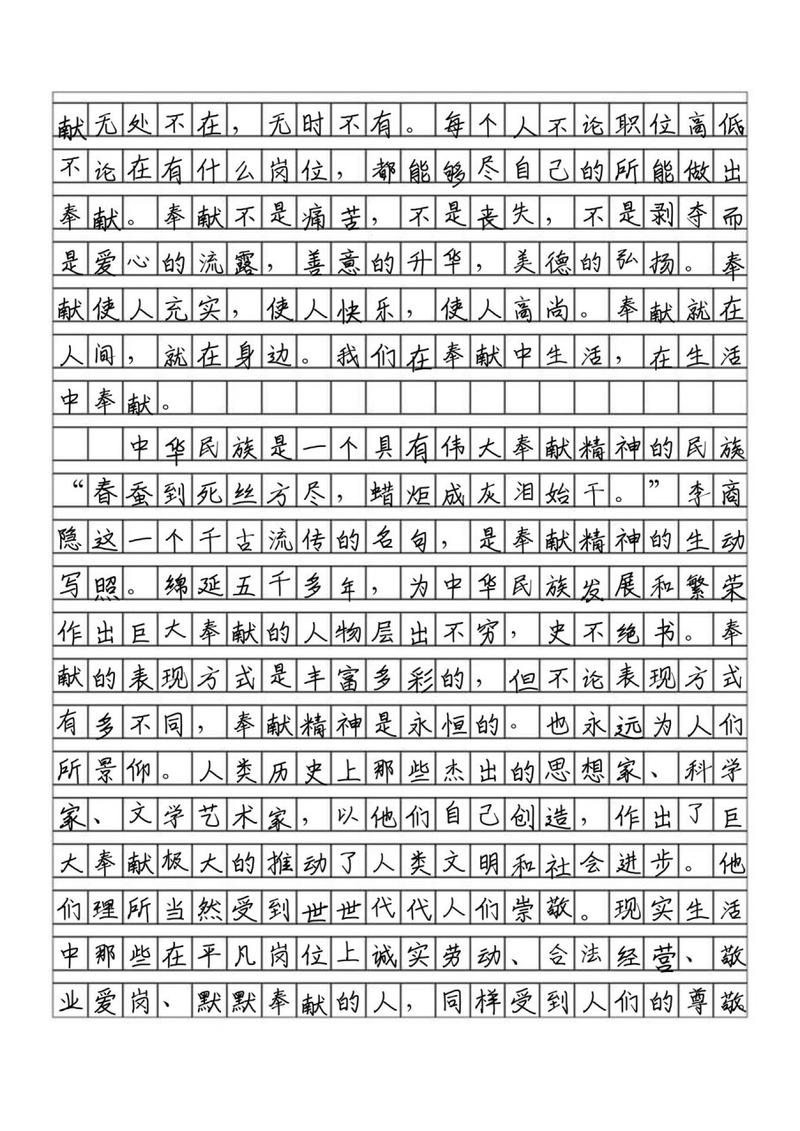 献无处不在，无时不有。每个人不论职位高低
不论在有什么岗位，都能够尽自己的所能做出
奉献。奉献不是痛苦，不是丧失，不是剥夺而
是爱心的流露，善意的升华，美德的弘扬。奉
献使人充实，使人快乐，使人高尚。奉献就在
人间，就在身边。我们在奉献中生活，在生活
中奉献。
中华民族是一个具有伟大奉献精神的民族
“春蚕到死丝方尽，蜡炬成灰泪始干。”李商
隐这一个千古流传的名句，是奉献精神的生动
写照。绵延五千多年，为中华民族发展和繁荣
作出巨大奉献的人物层出不穷，史不绝书。奉
献的表现方式是丰富多彩的，但不论表现方式
有多不同，奉献精神是永恒的。也永远为人们
所景仰。人类历史上那些杰出的思想家、科学
家、文学艺术家，以他们自己创造，作出了巨
大奉献极大的推动了人类文明和社会进步。他
们理所当然受到世世代代人们崇敬。现实生活
中那些在平凡岗位上诚实劳动、合法经营、敬
业爱岗、默默奉献的人，同样受到人们的尊敬